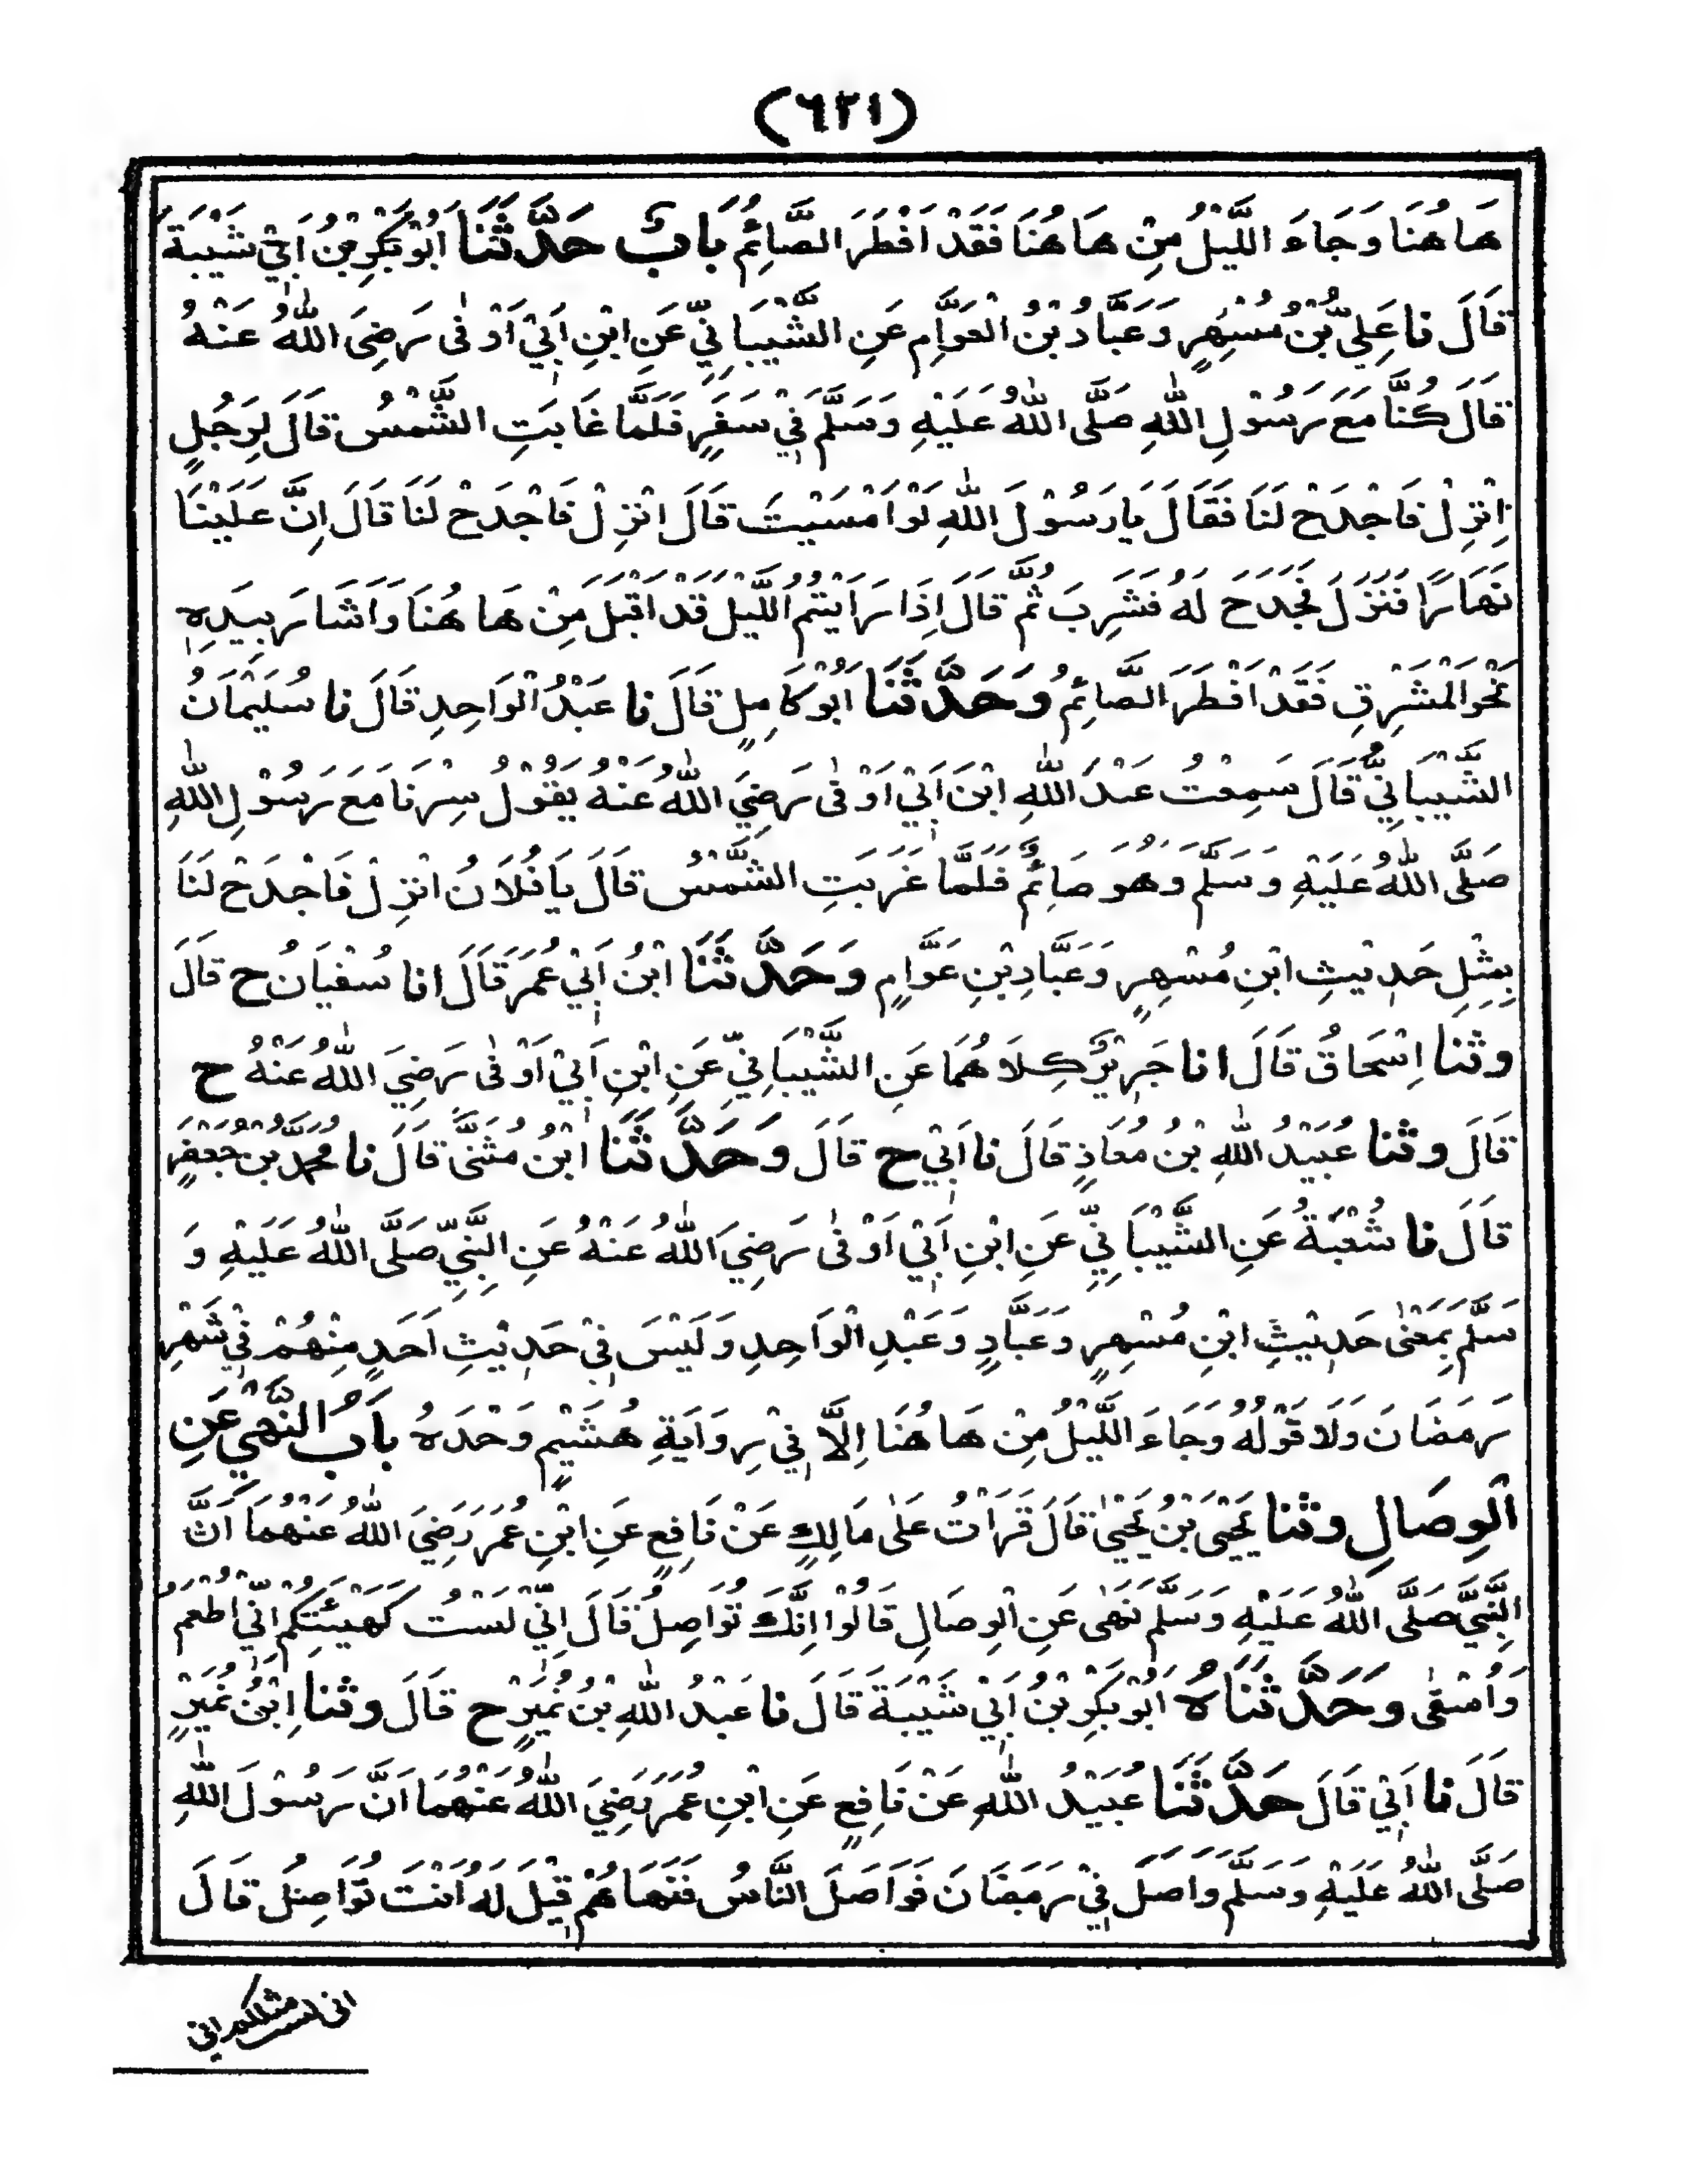 (٦٢١)
هَا هُنَا وَجَاءَ اللَّيْلُ مِنْ هَا هُنَا فَقَدْ اَفْطَرَ الصَّائِمُ بَابٌ حَدَّثَنَا اَبُوْ بَكْرِ بْنُ اَبِيْ شَيْبَةَ
قَالَ نا عَلِيُّ بْنُ مُسْهِرٍ وَعَبَّادُ بْنُ الْعَوَّامِ عَنِ الشَّيْبَانِيِّ عَنِ ابْنِ اَبِيْ اَوْفٰى رَضِيَ اللّٰهُ عَنْهُ
قَالَ كُنَّا مَعَ رَسُوْلِ اللّٰهِ صَلَّى اللّٰهُ عَلَيْهِ وَسَلَّمَ فِيْ سَفَرٍ فَلَمَّا غَابَتِ الشَّمْسُ قَالَ لِرَجُلٍ
اِنْزِلْ فَاجْدَحْ لَنَا فَقَالَ يَا رَسُوْلَ اللّٰهِ لَوْ اَمْسَيْتَ قَالَ انْزِلْ فَاجْدَحْ لَنَا قَالَ اِنَّ عَلَيْنَا
نَهَارًا فَنَزَلَ فَجَدَحَ لَهُ فَشَرِبَ ثُمَّ قَالَ اِذَا رَاَيْتُمُ اللَّيْلَ قَدْ اَقْبَلَ مِنْ هَا هُنَا وَاَشَارَ بِيَدِهٖ
نَحْوَ الْمَشْرِقِ فَقَدْ اَفْطَرَ الصَّائِمُ وَحَدَّثَنَا اَبُوْ كَامِلٍ قَالَ نا عَبْدُ الْوَاحِدِ قَالَ نا سُلَيْمَانُ
الشَّيْبَانِيُّ قَالَ سَمِعْتُ عَبْدَ اللّٰهِ ابْنَ اَبِيْ اَوْفٰى رَضِيَ اللّٰهُ عَنْهُ يَقُوْلُ سِرْنَا مَعَ رَسُوْلِ اللّٰهِ
صَلَّى اللّٰهُ عَلَيْهِ وَسَلَّمَ وَهُوَ صَائِمٌ فَلَمَّا غَرَبَتِ الشَّمْسُ قَالَ يَا فُلَانُ انْزِلْ فَاجْدَحْ لَنَا
بِمِثْلِ حَدِيْثِ ابْنِ مُسْهِرٍ وَعَبَّادِ بْنِ عَوَّامٍ وَحَدَّثَنَا ابْنُ اَبِيْ عُمَرَ قَالَ انا سُفْيَانُ ح قَالَ
وثنا اِسْحَاقُ قَالَ انا جَرِيْرٌ كِلَاهُمَا عَنِ الشَّيْبَانِيِّ عَنِ ابْنِ اَبِيْ اَوْفٰى رَضِيَ اللّٰهُ عَنْهُ ح
قَالَ وثنا عُبَيْدُ اللّٰهِ بْنُ مُعَاذٍ قَالَ نا اَبِيْ ح قَالَ وَحَدَّثَنَا ابْنُ مُثَنًّى قَالَ نا مُحَمَّدُ بْنُ جَعْفَرٍ
قَالَ نا شُعْبَةُ عَنِ الشَّيْبَانِيِّ عَنِ ابْنِ اَبِيْ اَوْفٰى رَضِيَ اللّٰهُ عَنْهُ عَنِ النَّبِيِّ صَلَّى اللّٰهُ عَلَيْهِ وَ
سَلَّمَ بِمَعْنٰى حَدِيْثِ ابْنِ مُسْهِرٍ وَعَبَّادٍ وَعَبْدِ الْوَاحِدِ وَلَيْسَ فِيْ حَدِيْثِ اَحَدٍ مِنْهُمْ فِيْ شَهْرِ
رَمَضَانَ وَلَا قَوْلُهُ وَجَاءَ اللَّيْلُ مِنْ هَا هُنَا اِلَّا فِيْ رِوَايَةِ هُشَيْمٍ وَحْدَهُ بَابُ النَّهْيِ عَنِ
الْوِصَالِ وثنا يَحْيَى بْنُ يَحْيٰى قَالَ قَرَاْتُ عَلٰى مَالِكٍ عَنْ نَافِعٍ عَنِ ابْنِ عُمَرَ رَضِيَ اللّٰهُ عَنْهُمَا اَنَّ
النَّبِيَّ صَلَّى اللّٰهُ عَلَيْهِ وَسَلَّمَ نَهٰى عَنِ الْوِصَالِ قَالُوْا اِنَّكَ تُوَاصِلُ قَالَ اِنِّيْ لَسْتُ كَهَيْئَتِكُمْ اِنِّيْ اُطْعَمُ
وَاُسْقٰى وَحَدَّثَنَاهُ اَبُوْ بَكْرِ بْنُ اَبِيْ شَيْبَةَ قَالَ نا عَبْدُ اللّٰهِ بْنُ نُمَيْرٍ ح قَالَ وثنا اِبْنُ نُمَيْرٍ
قَالَ نا اَبِيْ قَالَ حَدَّثَنَا عُبَيْدُ اللّٰهِ عَنْ نَافِعٍ عَنِ ابْنِ عُمَرَ رَضِيَ اللّٰهُ عَنْهُمَا اَنَّ رَسُوْلَ اللّٰهِ
صَلَّى اللّٰهُ عَلَيْهِ وَسَلَّمَ وَاصَلَ فِيْ رَمَضَانَ فَوَاصَلَ النَّاسُ فَنَهَاهُمْ قِيْلَ لَهُ اَنْتَ تُوَاصِلُ قَالَ
انى لست مثلكم انى